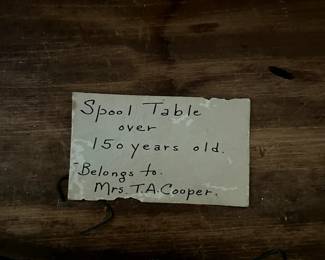 Spool Table
over
150 years old.
Belongs to.
Mrs. T.A. Cooper.